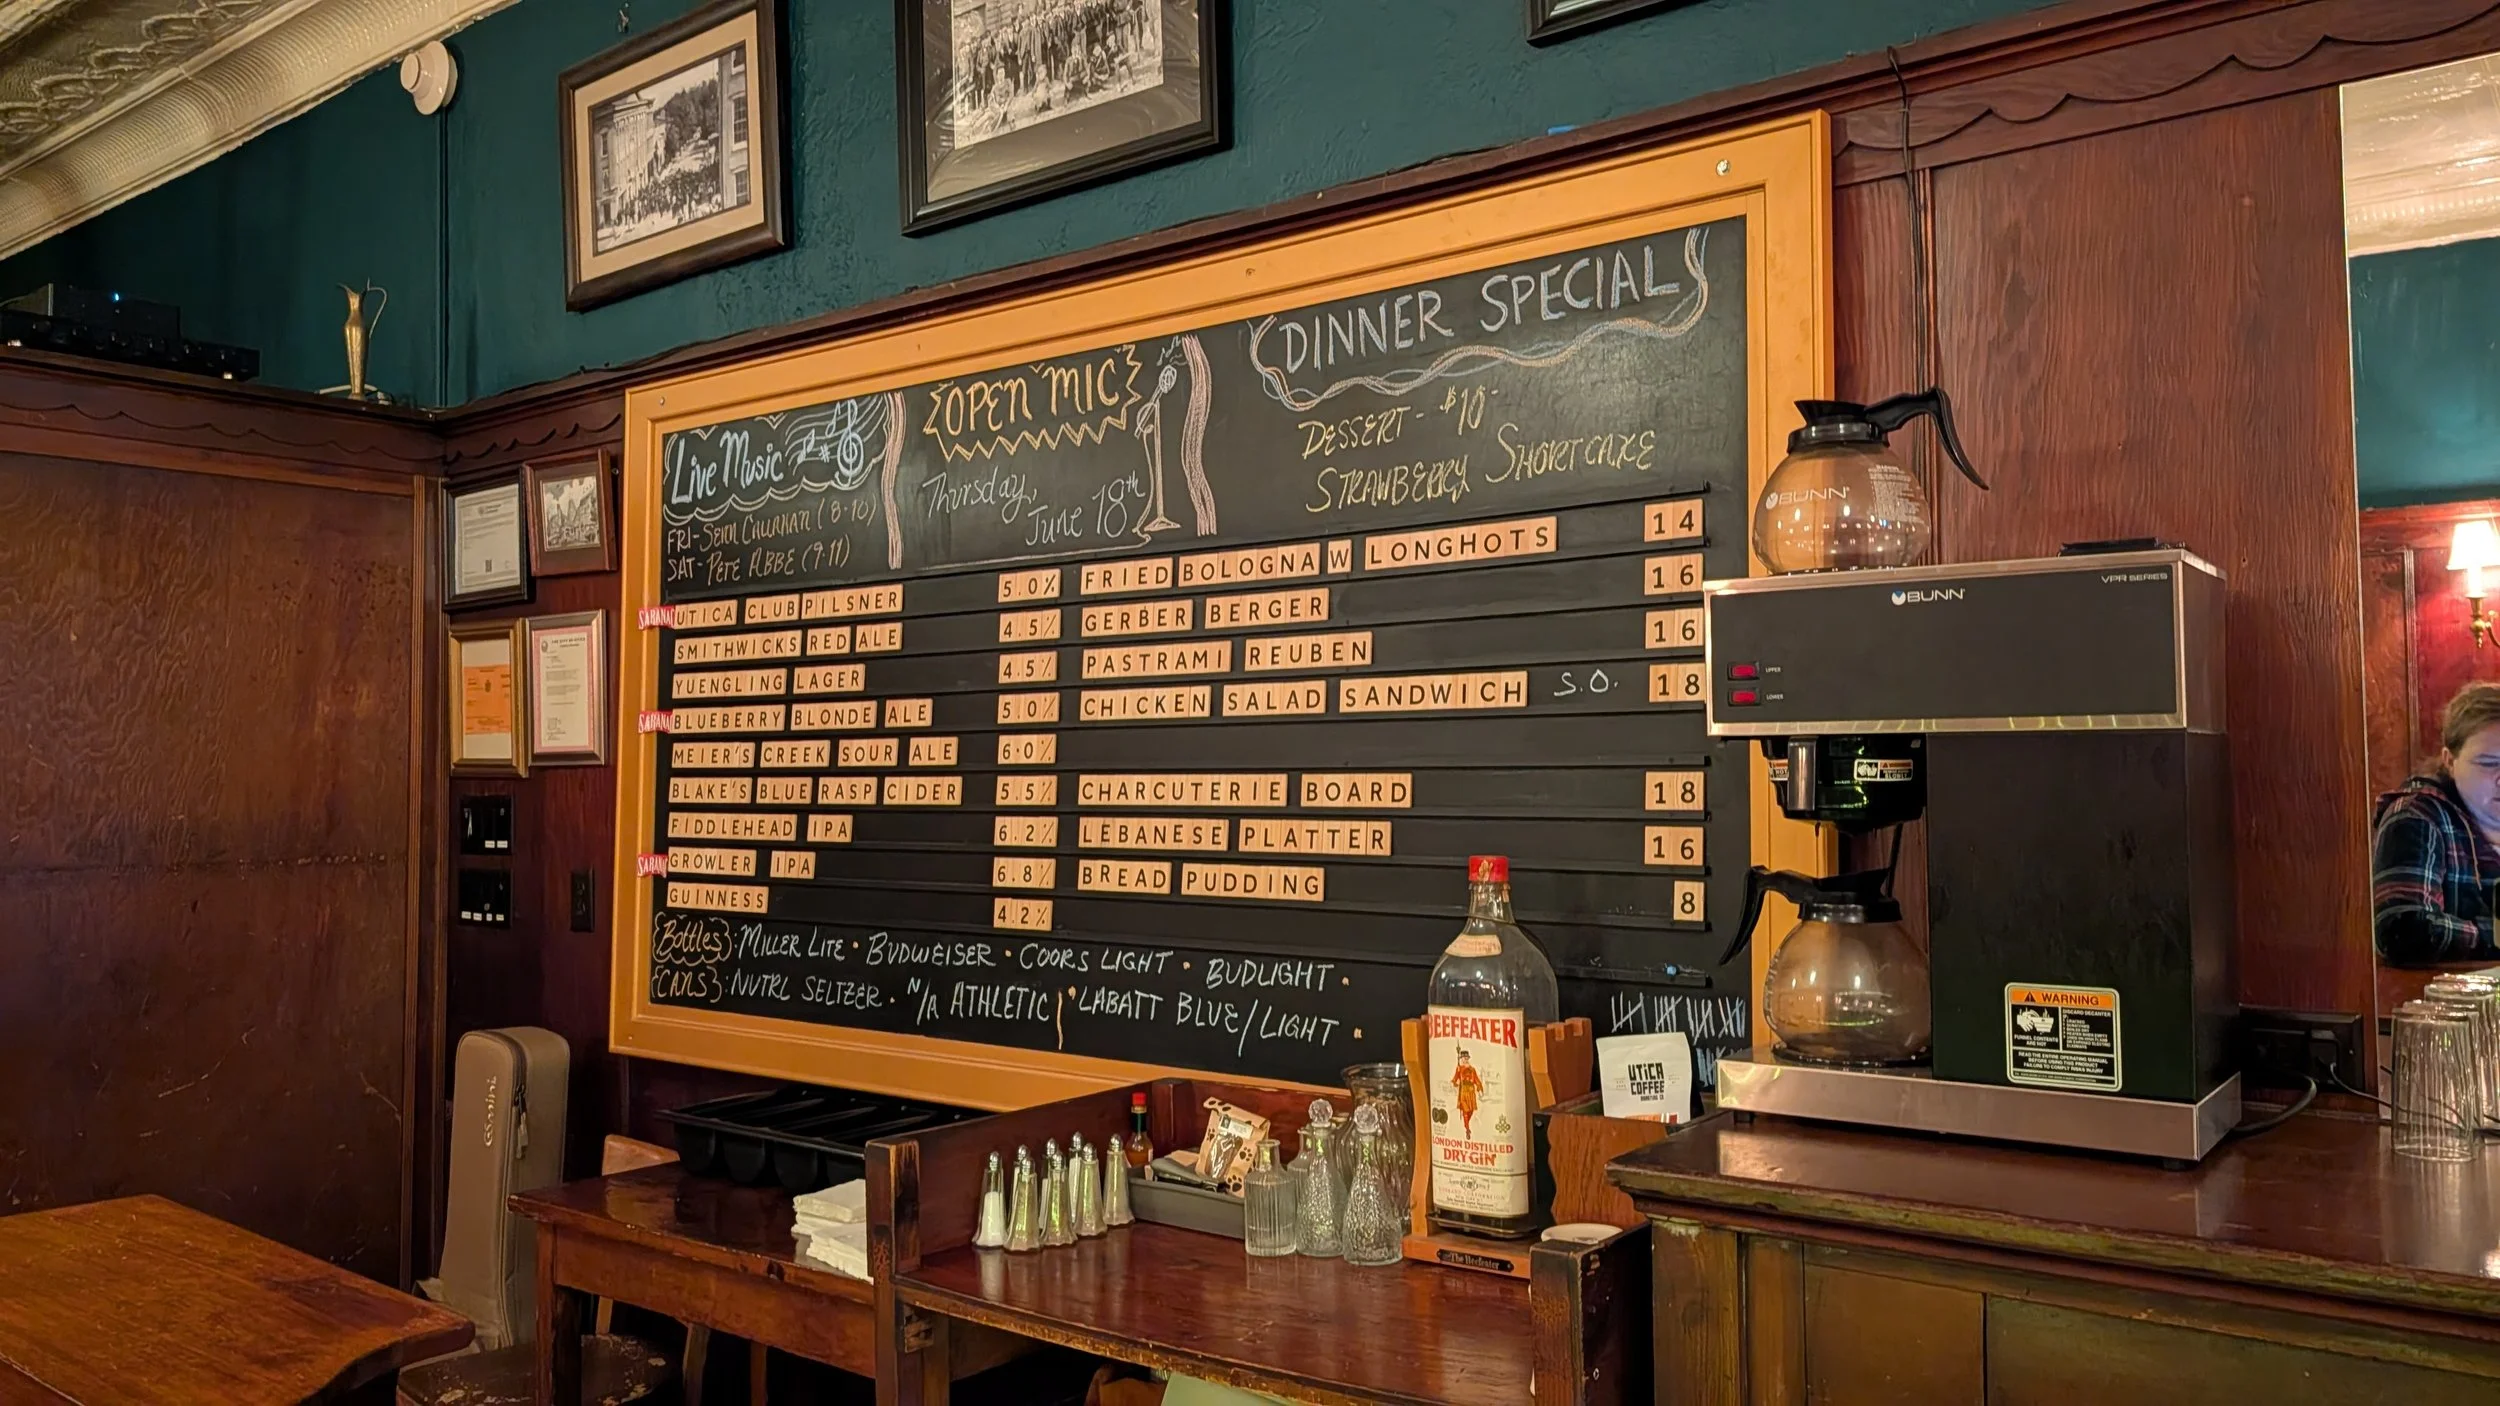 Live Music
FRI- SEAN CALLAHAN (8-10)
SAT- PETE ABBE (9-11)
OPEN MIC
Thursday,
June 18th
DINNER SPECIAL
DESSERT - $10-
STRAWBERRY SHORTCAKE
SARANAC UTICA CLUB PILSNER 5.0%
SMITHWICKS RED ALE 4.5%
YUENGLING LAGER 4.5%
SARANAC BLUEBERRY BLONDE ALE 5.0%
MEIER'S CREEK SOUR ALE 6.0%
BLAKE'S BLUE RASP CIDER 5.5%
FIDDLEHEAD IPA 6.2%
SARANAC GROWLER IPA 6.8%
GUINNESS 4.2%
FRIED BOLOGNA W LONGHOTS 14
GERBER BERGER 16
PASTRAMI REUBEN 16
CHICKEN SALAD SANDWICH S.O. 18
CHARCUTERIE BOARD 18
LEBANESE PLATTER 16
BREAD PUDDING 8
Bottles: MILLER LITE • BUDWEISER • COORS LIGHT • BUDLIGHT •
CANS: NUTRL SELTZER • N/A ATHLETIC • LABATT BLUE/LIGHT •
BUNN
BUNN
VPR SERIES
UPPER
LOWER
WARNING
DISCARD DECANTER
FUNNEL CONTENTS
ARE HOT
READ THE ENTIRE OPERATING MANUAL
BEEFEATER
LONDON DISTILLED
DRY GIN
The Beefeater
UTICA
COFFEE
ROASTING CO
gemini